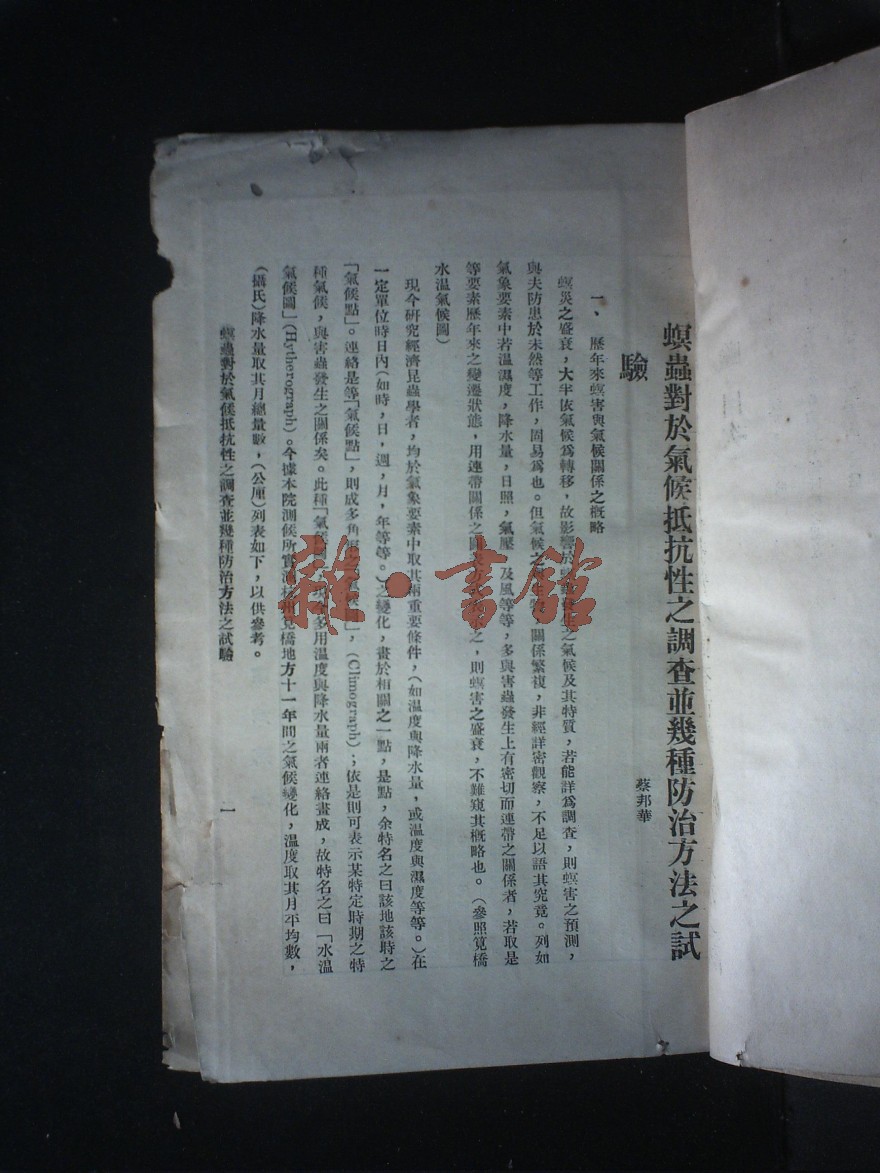 螟蟲對於氣候抵抗性之調查並幾種防治方法之試
驗
蔡邦華
一、歷年來螟害與氣候關係之概略
螟災之盛衰，大半依氣候為轉移，故影響於螟蟲發生之氣候及其特質，若能詳為調查，則螟害之預測，
與夫防患於未然等工作，固易為也。但氣候之與生物，關係繁複，非經詳密觀察，不足以語其究竟。列如
氣象要素中若溫濕度，降水量，日照，氣壓，及風等等，多與害蟲發生上有密切而連帶之關係者，若取是
等要素歷年來之變遷狀態，用連帶關係之圖之，則螟害之盛衰，不難窺其概略也。（參照筧橋
水溫氣候圖）
現今研究經濟昆蟲學者，均於氣象要素中取其兩重要條件，（如溫度與降水量，或溫度與濕度等等。）在
一定單位時日內（如時，日，週，月，年等等。）之變化，畫於相關之一點，是點，余特名之曰該地該時之
「氣候點」。連絡是等「氣候點」，則成多角形之「氣候圖」，（Climograph）；依是則可表示某特定時期之特
種氣候，與害蟲發生之關係矣。此種「氣候圖」多用溫度與降水量兩者連絡畫成，故特名之曰「水溫
氣候圖」（Hytherograph）。今據本院測候所實測杭州筧橋地方十一年間之氣候變化，溫度取其月平均數，
（攝氏）降水量取其月總量數，（公厘）列表如下，以供參考。
螟蟲對於氣候抵抗性之調查並幾種防治方法之試驗
一
雜·書館